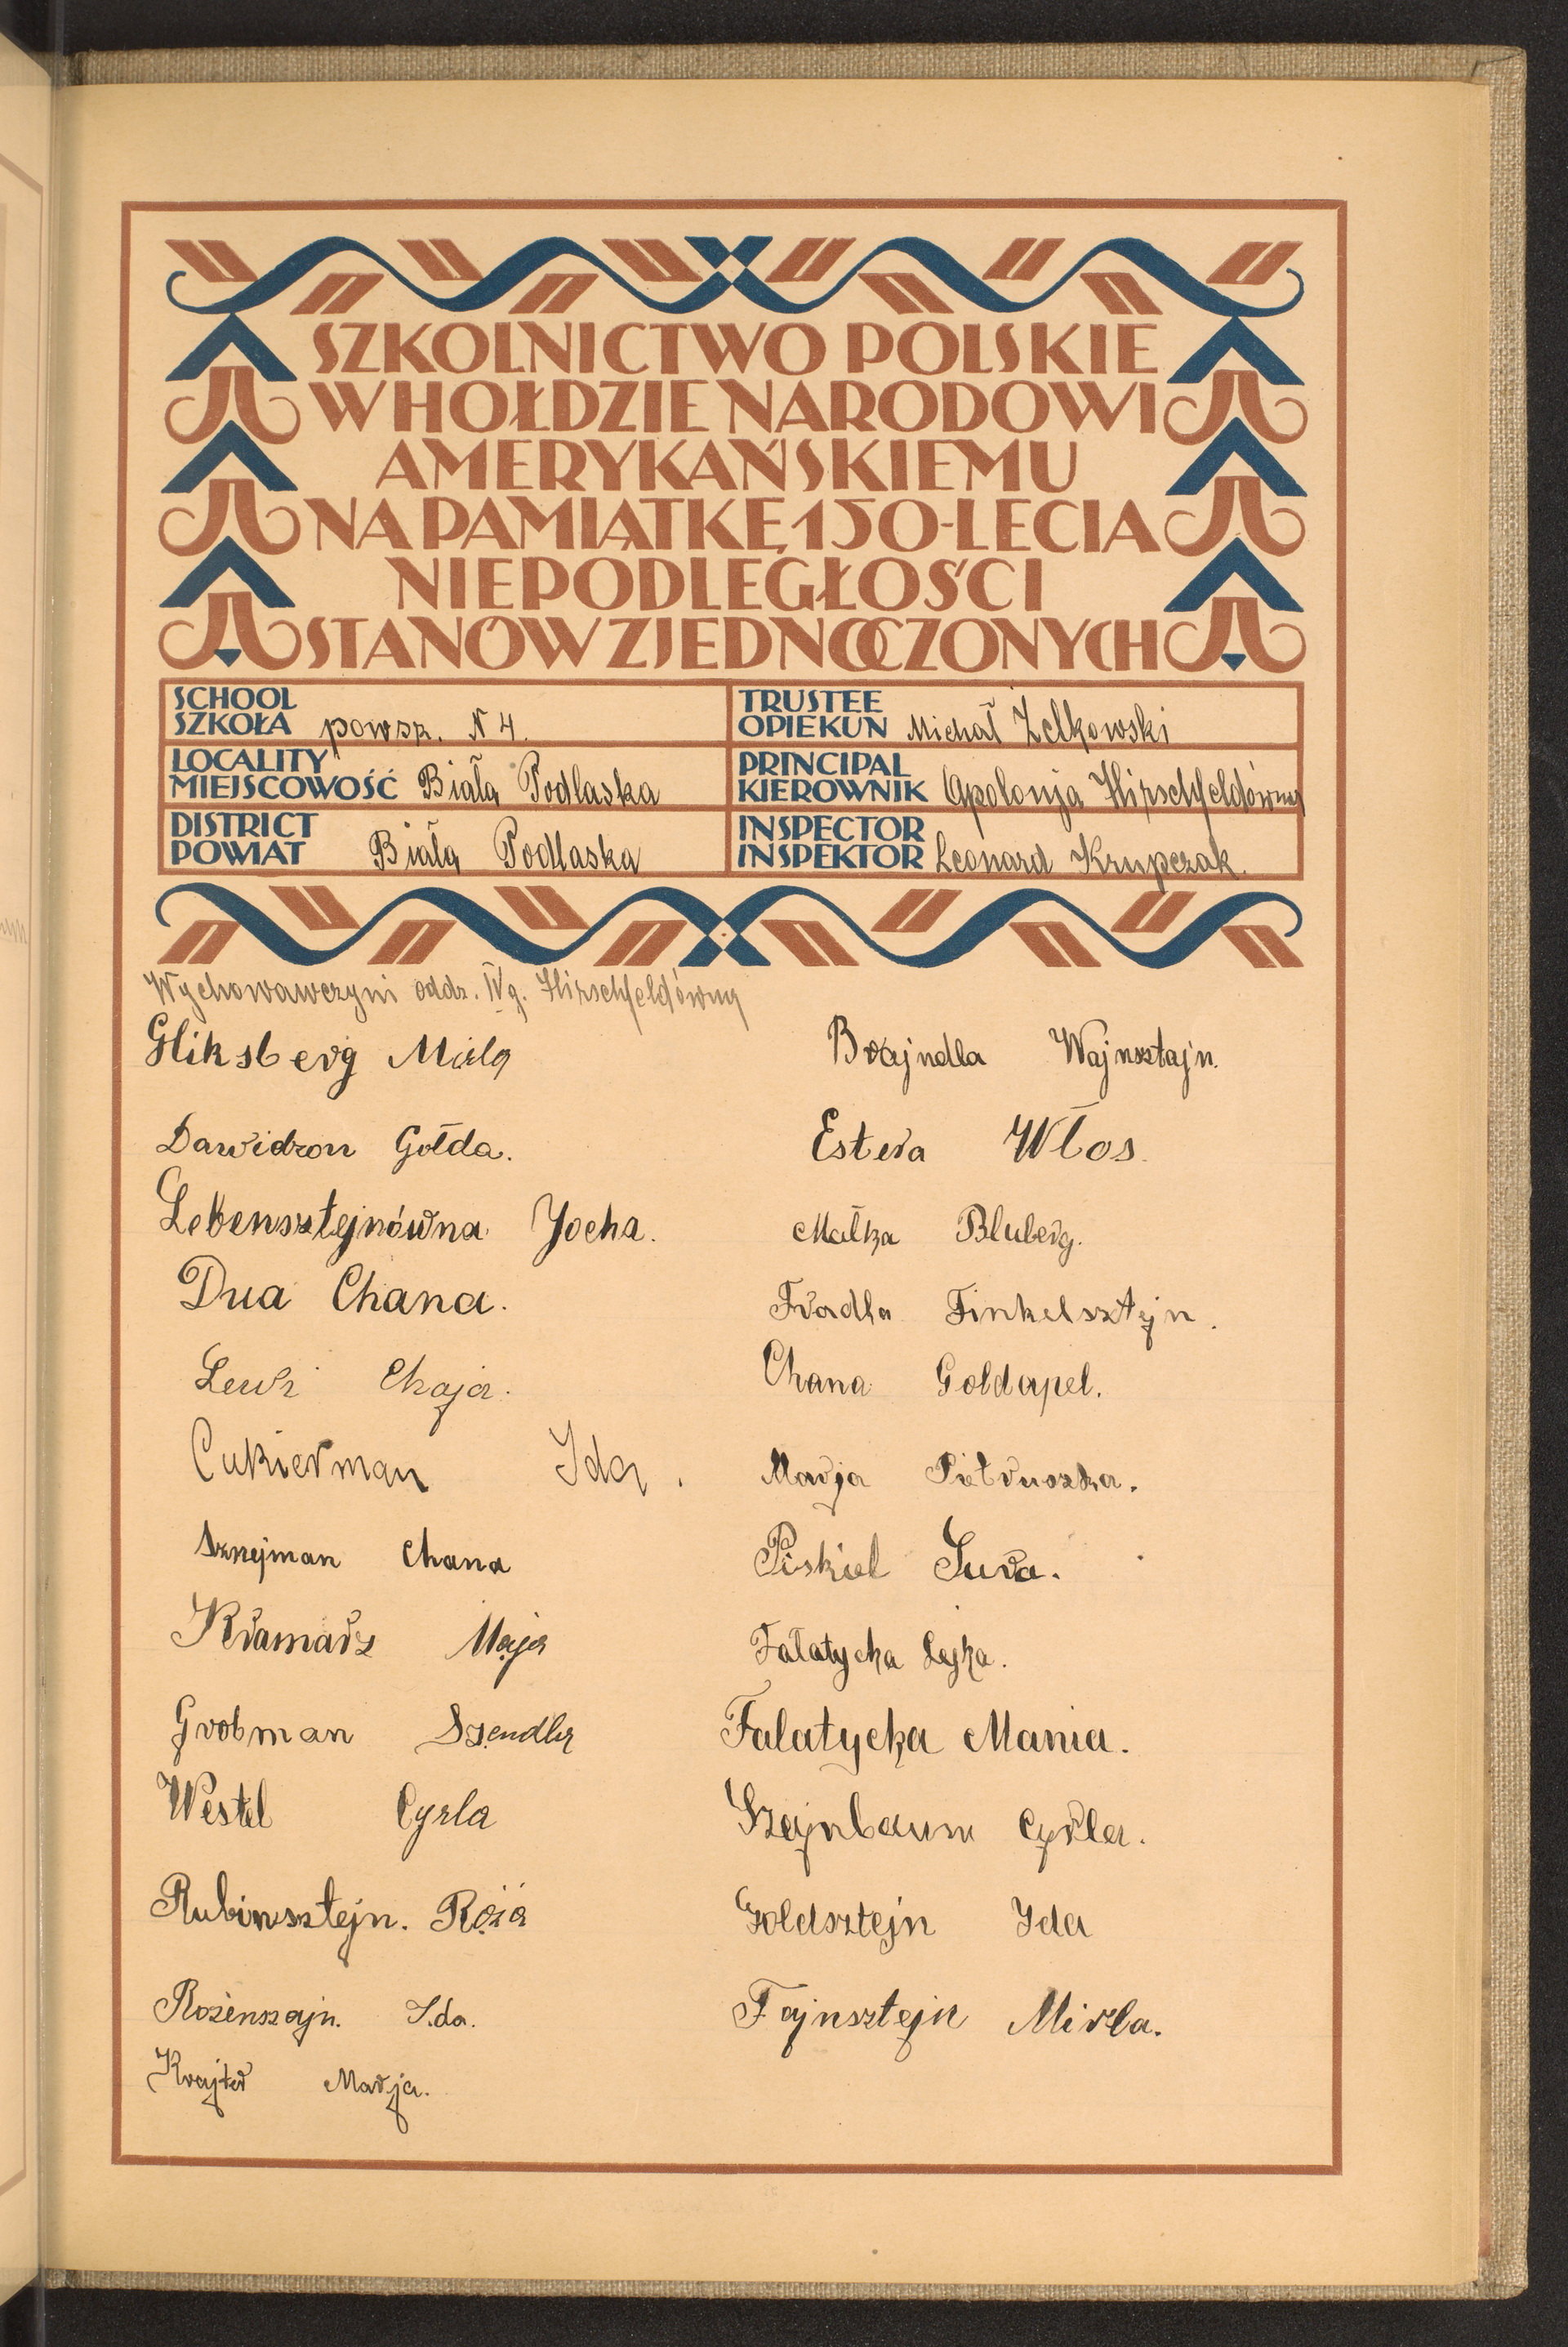 SZKOLNICTWO POLSKIE
W HOŁDZIE NARODOWI
AMERYKAŃSKIEMU
NA PAMIĄTKĘ 150-LECIA
NIEPODLEGŁOŚCI
STANÓW ZJEDNOCZONYCH
SCHOOL
SZKOŁA powsz. N 4.
TRUSTEE
OPIEKUN Michał Żelkowski
LOCALITY
MIEJSCOWOŚĆ Biała Podlaska
PRINCIPAL
KIEROWNIK Apolonja Hirschfeldówny
DISTRICT
POWIAT Biała Podlaska
INSPECTOR
INSPEKTOR Leonard Krupczak.
Wychowawczyni oddz. IV g. Hirschfeldówny
Gliksberg
Dawidzon Gołda.
Lebensztejnówna Jocha.
Dua Chana.
Lewi Chaja.
Cukierman Ida.
Sznejman Chana
Kramarz Maja
Grobman Szendla
Westel Cyrla
Rubinsztejn. Róża
Rozenszajn. Ida.
Krajter Marja.
Brajndla Wajnsztajn.
Estera Włos.
Małka Bluberg.
Fradla Finkelsztejn.
Chana Goldapel.
Marja Pietruszka.
Piskiel Sura.
Fałatycka Lejka.
Falatycka Mania.
Szejnbaum Cyrla.
Goldsztejn Ida
Fajnsztejn Mirla.